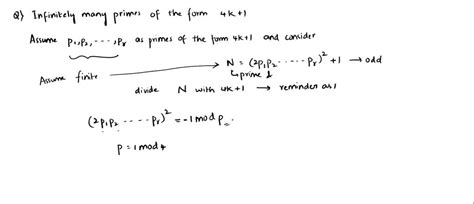 Q) Infinitely many primes of the form 4k+1
Assume p₁,p₂, ---, pᵣ as primes of the form 4k+1 and consider
Assume finite → N = (2p₁p₂ ----- pᵣ)² + 1 → odd
↳prime
divide N with 4k+1 → reminder as 1
(2p₁p₂ ---- pᵣ)² = -1 mod p
p = 1 mod 4